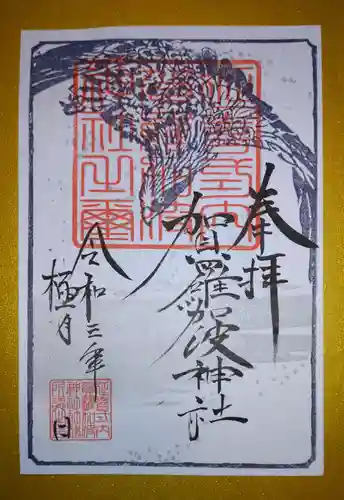 奉拝
賀羅加波神社
令和三年
極月
日